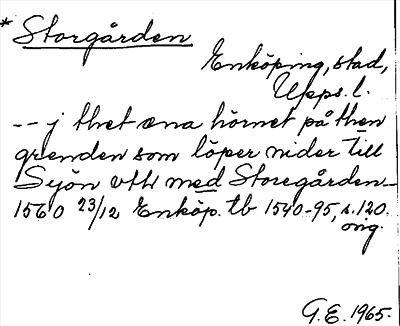 * Storgården
Enköping, stad,
Upps. l.
-- j thet ena hörnet på then
grenden som löper nider till
Sejön vth med Storegården -
1560 23/12 Enköp. tb 1540-95, s. 120.
orig.
G. E. 1965.